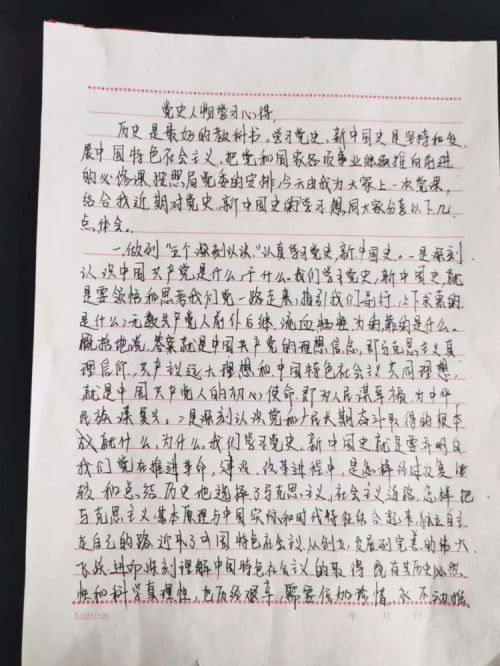 党史人物学习心得,
历史是最好的教科书。学习党史,新中国史是坚持和发
展中国特色社会主义、把党和国家各项事业继续推向前进
的必修课。按照局党委的安排,今天由我为大家上一次党课,
结合我近期对党史,新中国史的学习想同大家分享以下几
点体会。
一、做到“五个深刻认识”认真学习党史,新中国史。一是深刻
认识中国共产党是什么,干什么。我们学习党史,新中国史,就
是要领悟和思考我们党一路走来,指引我们前行,上下求索的
是什么;无数共产党人前仆后继,流血牺牲为的是什么。
概括地说,答案就是中国共产党的理想信念,即马克思主义真
理信仰,共产主义远大理想和中国特色社会主义共同理想,
就是中国共产党人的初心使命,即为人民谋幸福,为中华
民族谋复兴。二是深刻认识党和人民长期奋斗取得的根本
成就什么,为什么。我们学习党史,新中国史就是要弄明白
我们党在推进革命,建设,改革进程中,是怎样经过反复比
较和总结,历史地选择了马克思主义,社会主义道路,怎样把
马克思主义基本原理与中国实际和时代特征结合起来,独立自主
走自己的路,近取了中国特色社会主义从创立,发展到完善的伟大
飞跃,进而深刻理解中国特色社会主义的取得既有其历史必然
性和科学真理性,也历经艰辛,需要倍加珍惜、永不动摇,
年 月 日